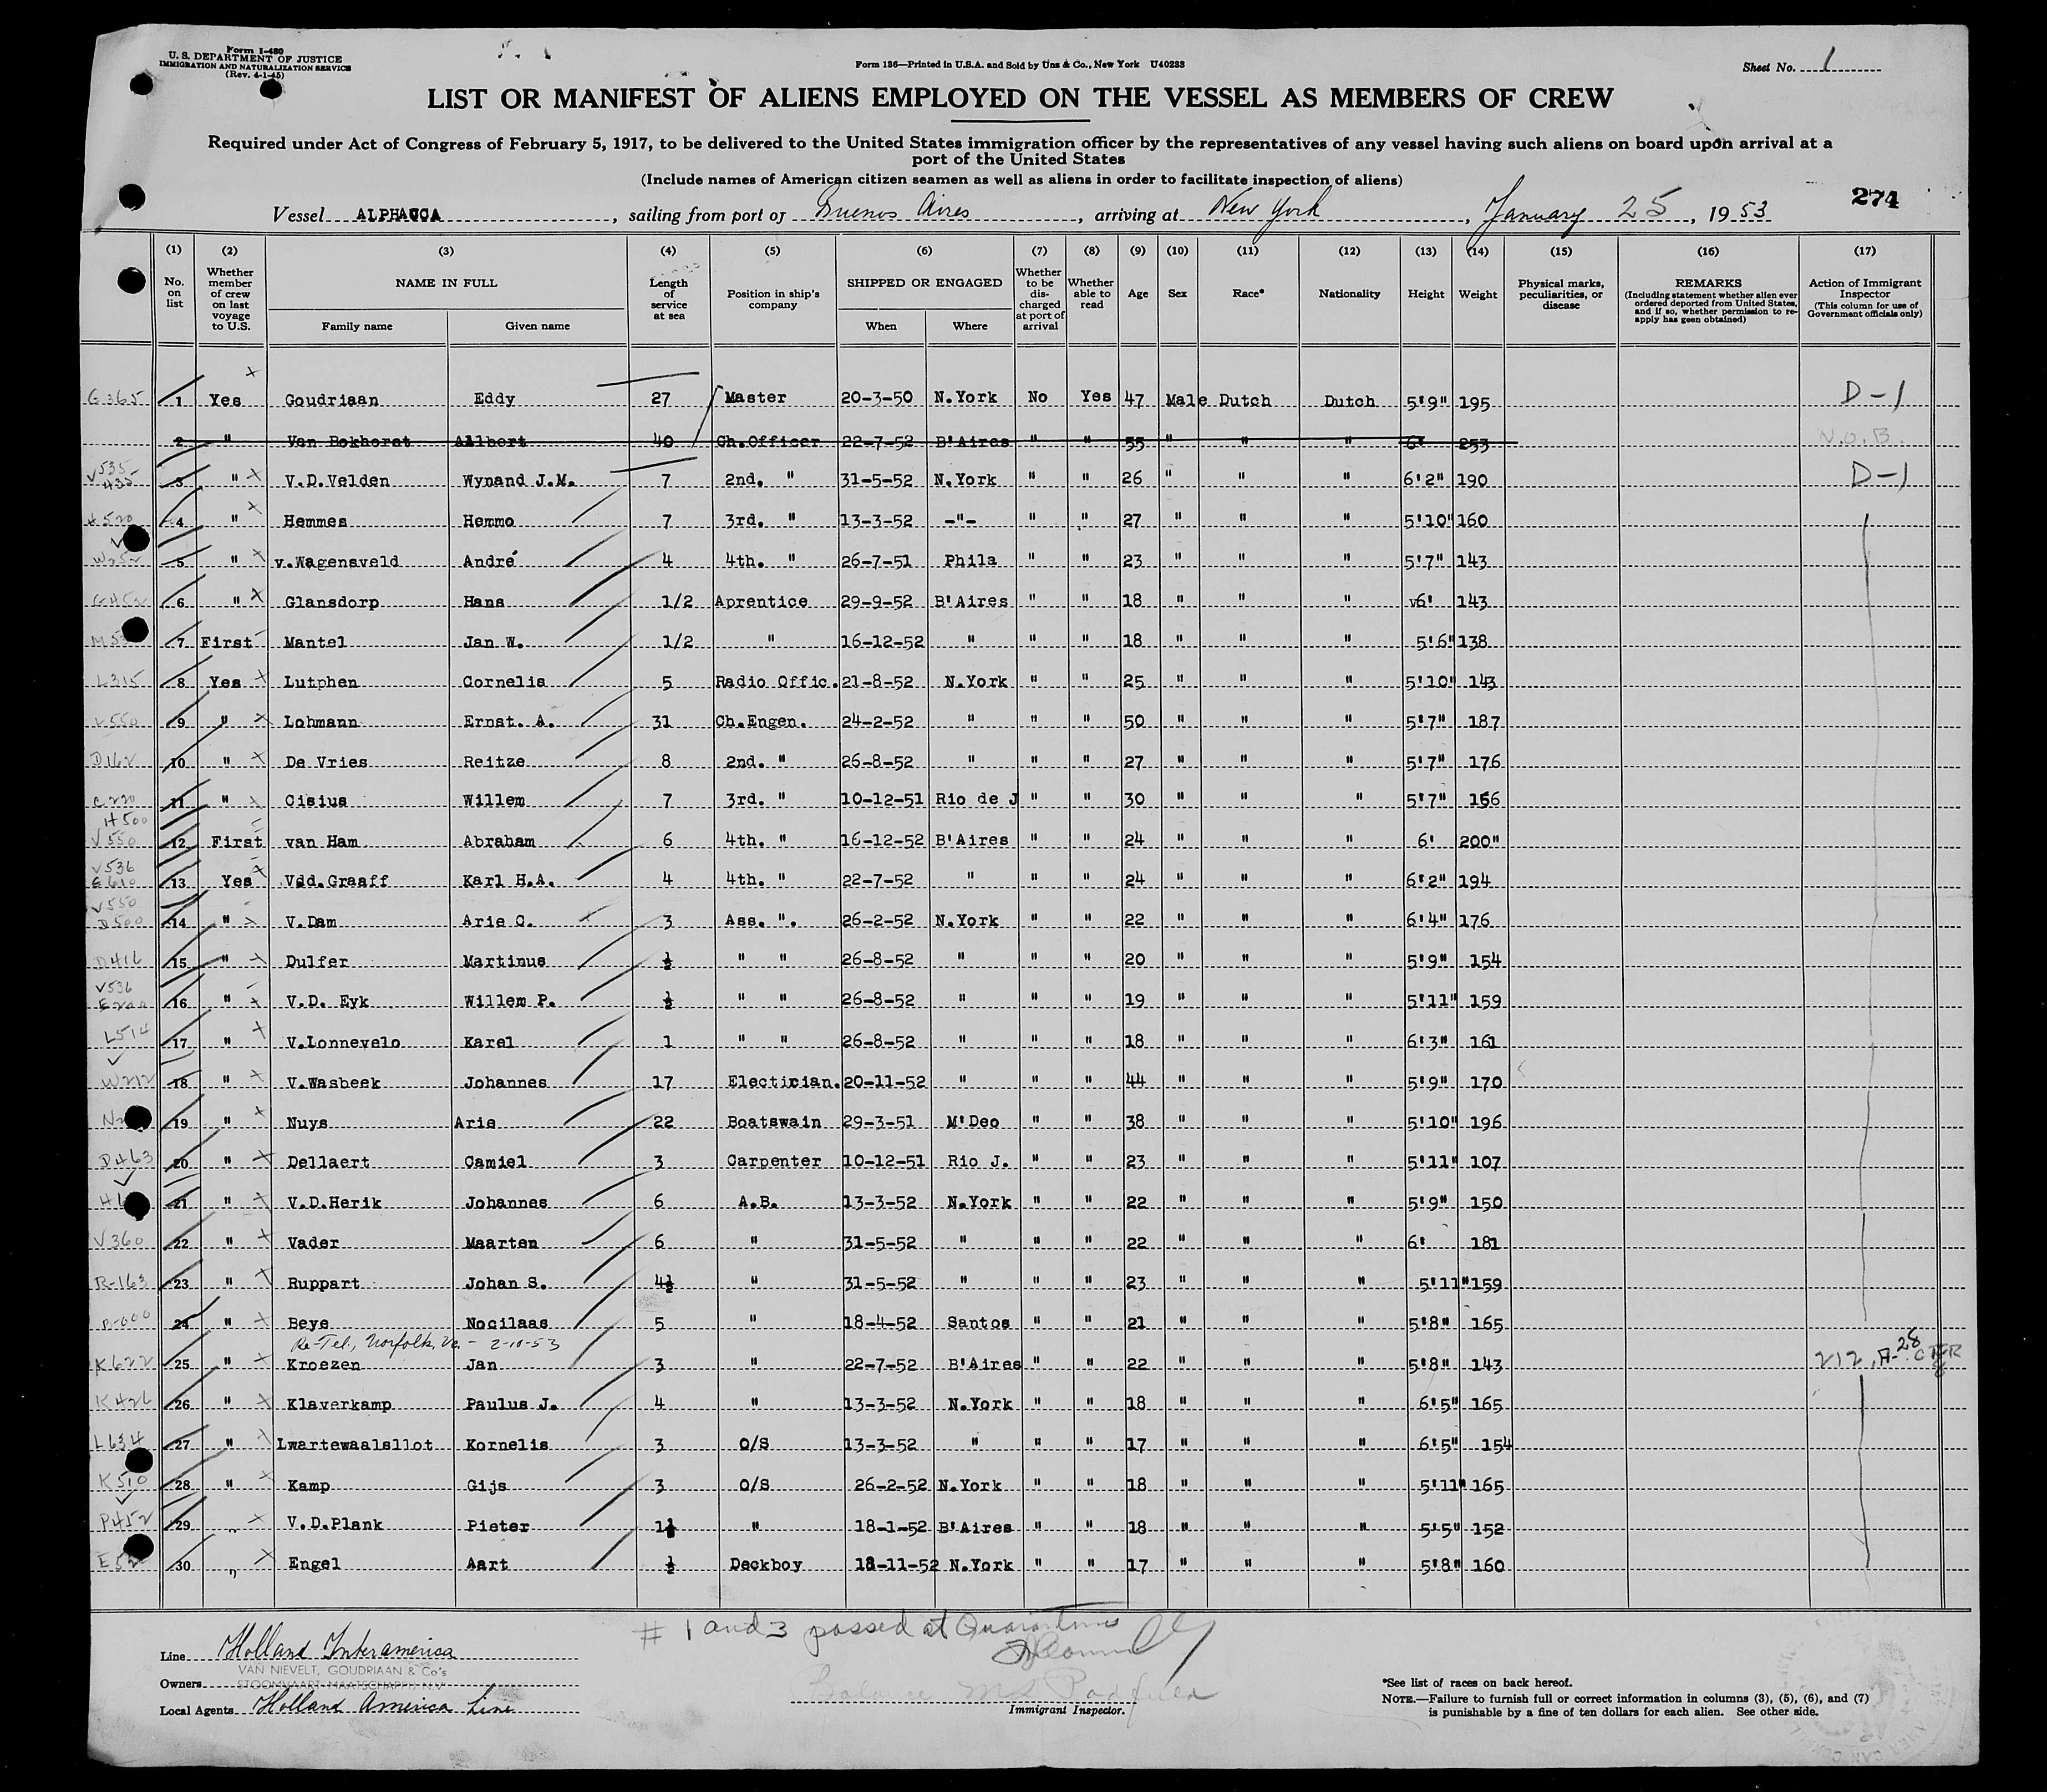 Form I-480
U. S. DEPARTMENT OF JUSTICE
IMMIGRATION AND NATURALIZATION SERVICE
(Rev. 4-1-45)
Form 136—Printed in U.S.A. and Sold by Unz & Co., New York U40233
Sheet No. 1
LIST OR MANIFEST OF ALIENS EMPLOYED ON THE VESSEL AS MEMBERS OF CREW
Required under Act of Congress of February 5, 1917, to be delivered to the United States immigration officer by the representatives of any vessel having such aliens on board upon arrival at a
port of the United States
(Include names of American citizen seamen as well as aliens in order to facilitate inspection of aliens)
274
Vessel ALPHACCA, sailing from port of Buenos Aires, arriving at New York, January 25, 1953
(1) (2) (3) (4) (5) (6) (7) (8) (9) (10) (11) (12) (13) (14) (15) (16) (17)
No. on list
Whether member of crew on last voyage to U.S.
NAME IN FULL
Family name Given name
Length of service at sea
Position in ship's company
SHIPPED OR ENGAGED
When Where
Whether to be discharged at port of arrival
Whether able to read
Age Sex Race* Nationality Height Weight
Physical marks, peculiarities, or disease
REMARKS
(Including statement whether alien ever ordered deported from United States, and if so, whether permission to re-apply has geen obtained)
Action of Immigrant Inspector
(This column for use of Government officials only)
G365 1 Yes x Goudriaan Eddy 27 Master 20-3-50 N.York No Yes 47 Male Dutch Dutch 5'9" 195 D-1
2 " Van Bokhorst Allbert 40 Ch.Officer 22-7-52 B'Aires " " 55 " " " 6' 253 N.O.B.
V535 435 3 " x V.D.Velden Wynand J.M. 7 2nd. " 31-5-52 N.York " " 26 " " " 6'2" 190 D-1
H520 4 " x Hemmes Hemmo 7 3rd. " 13-3-52 -"- " " 27 " " " 5'10" 160
W252 5 " x v.Wagensveld André 4 4th. " 26-7-51 Phila " " 23 " " " 5'7" 143
G452 6 " x Glansdorp Hans 1/2 Aprentice 29-9-52 B'Aires " " 18 " " " 6' 143
7 First Mantel Jan W. 1/2 " 16-12-52 " " " 18 " " " 5'6" 138
L315 8 Yes x Lutphen Cornelis 5 Radio Offic. 21-8-52 N.York " " 25 " " " 5'10" 143
9 " x Lohmann Ernst. A. 31 Ch.Engen. 24-2-52 " " " 50 " " " 5'7" 187
D162 10 " x De Vries Reitze 8 2nd. " 26-8-52 " " " 27 " " " 5'7" 176
C220 11 " x Cisius Willem 7 3rd. " 10-12-51 Rio de J " " 30 " " " 5'7" 156
H500 V550 12 First van Ham Abraham 6 4th. " 16-12-52 B'Aires " " 24 " " " 6' 200"
V536 G610 13 Yes x Vdd.Graaff Karl H.A. 4 4th. " 22-7-52 " " " 24 " " " 6'2" 194
V550 D500 14 " x V.Dam Arie C. 3 Ass. ". 26-2-52 N.York " " 22 " " " 6'4" 176
D416 15 " x Dulfer Martinus ½ " " 26-8-52 " " " 20 " " " 5'9" 154
V536 E200 16 " x V.D. Eyk Willem P. ½ " " 26-8-52 " " " 19 " " " 5'11" 159
L514 17 " x V.Lonnevelo Karel 1 " " 26-8-52 " " " 18 " " " 6'3" 161
W212 18 " x V.Wasbeek Johannes 17 Electirian. 20-11-52 " " " 44 " " " 5'9" 170
19 " x Nuys Arie 22 Boatswain 29-3-51 M'Deo " " 38 " " " 5'10" 196
D463 20 " x Dellaert Camiel 3 Carpenter 10-12-51 Rio J. " " 23 " " " 5'11" 107
21 " x V.D.Herik Johannes 6 A.B. 13-3-52 N.York " " 22 " " " 5'9" 150
V360 22 " x Vader Maarten 6 " 31-5-52 " " " 22 " " " 6' 181
R-163 23 " x Ruppart Johan S. 4½ " 31-5-52 " " " 23 " " " 5'11" 159
B-000 24 " x Beye Nocilaas 5 " 18-4-52 Santos " " 21 " " " 5'8" 165
Re-Tel., Norfolk, Va. - 2-10-53
K622 25 " x Kroezen Jan 3 " 22-7-52 B'Aires " " 22 " " " 5'8" 143 212.A-28
K426 26 " x Klaverkamp Paulus J. 4 " 13-3-52 N.York " " 18 " " " 6'5" 165
L634 27 " x Lwartewaalsllot Kornelis 3 O/S 13-3-52 " " " 17 " " " 6'5" 154
K510 28 " x Kamp Gijs 3 O/S 26-2-52 N.York " " 18 " " " 5'11" 165
P452 29 " x V.D.Plank Pieter 1½ " 18-1-52 B'Aires " " 18 " " " 5'5" 152
30 " x Engel Aart ½ Deckboy 18-11-52 N.York " " 17 " " " 5'8" 160
# 1 and 3 passed at Quarantine
Line Holland Interamerica
Owners VAN NIEVELT, GOUDRIAAN & Co's
STOOMVAART MAATSCHAPPIJ N.V.
Local Agents Holland America Line
Balance
Immigrant Inspector.
*See list of races on back hereof.
NOTE.—Failure to furnish full or correct information in columns (3), (5), (6), and (7)
is punishable by a fine of ten dollars for each alien. See other side.